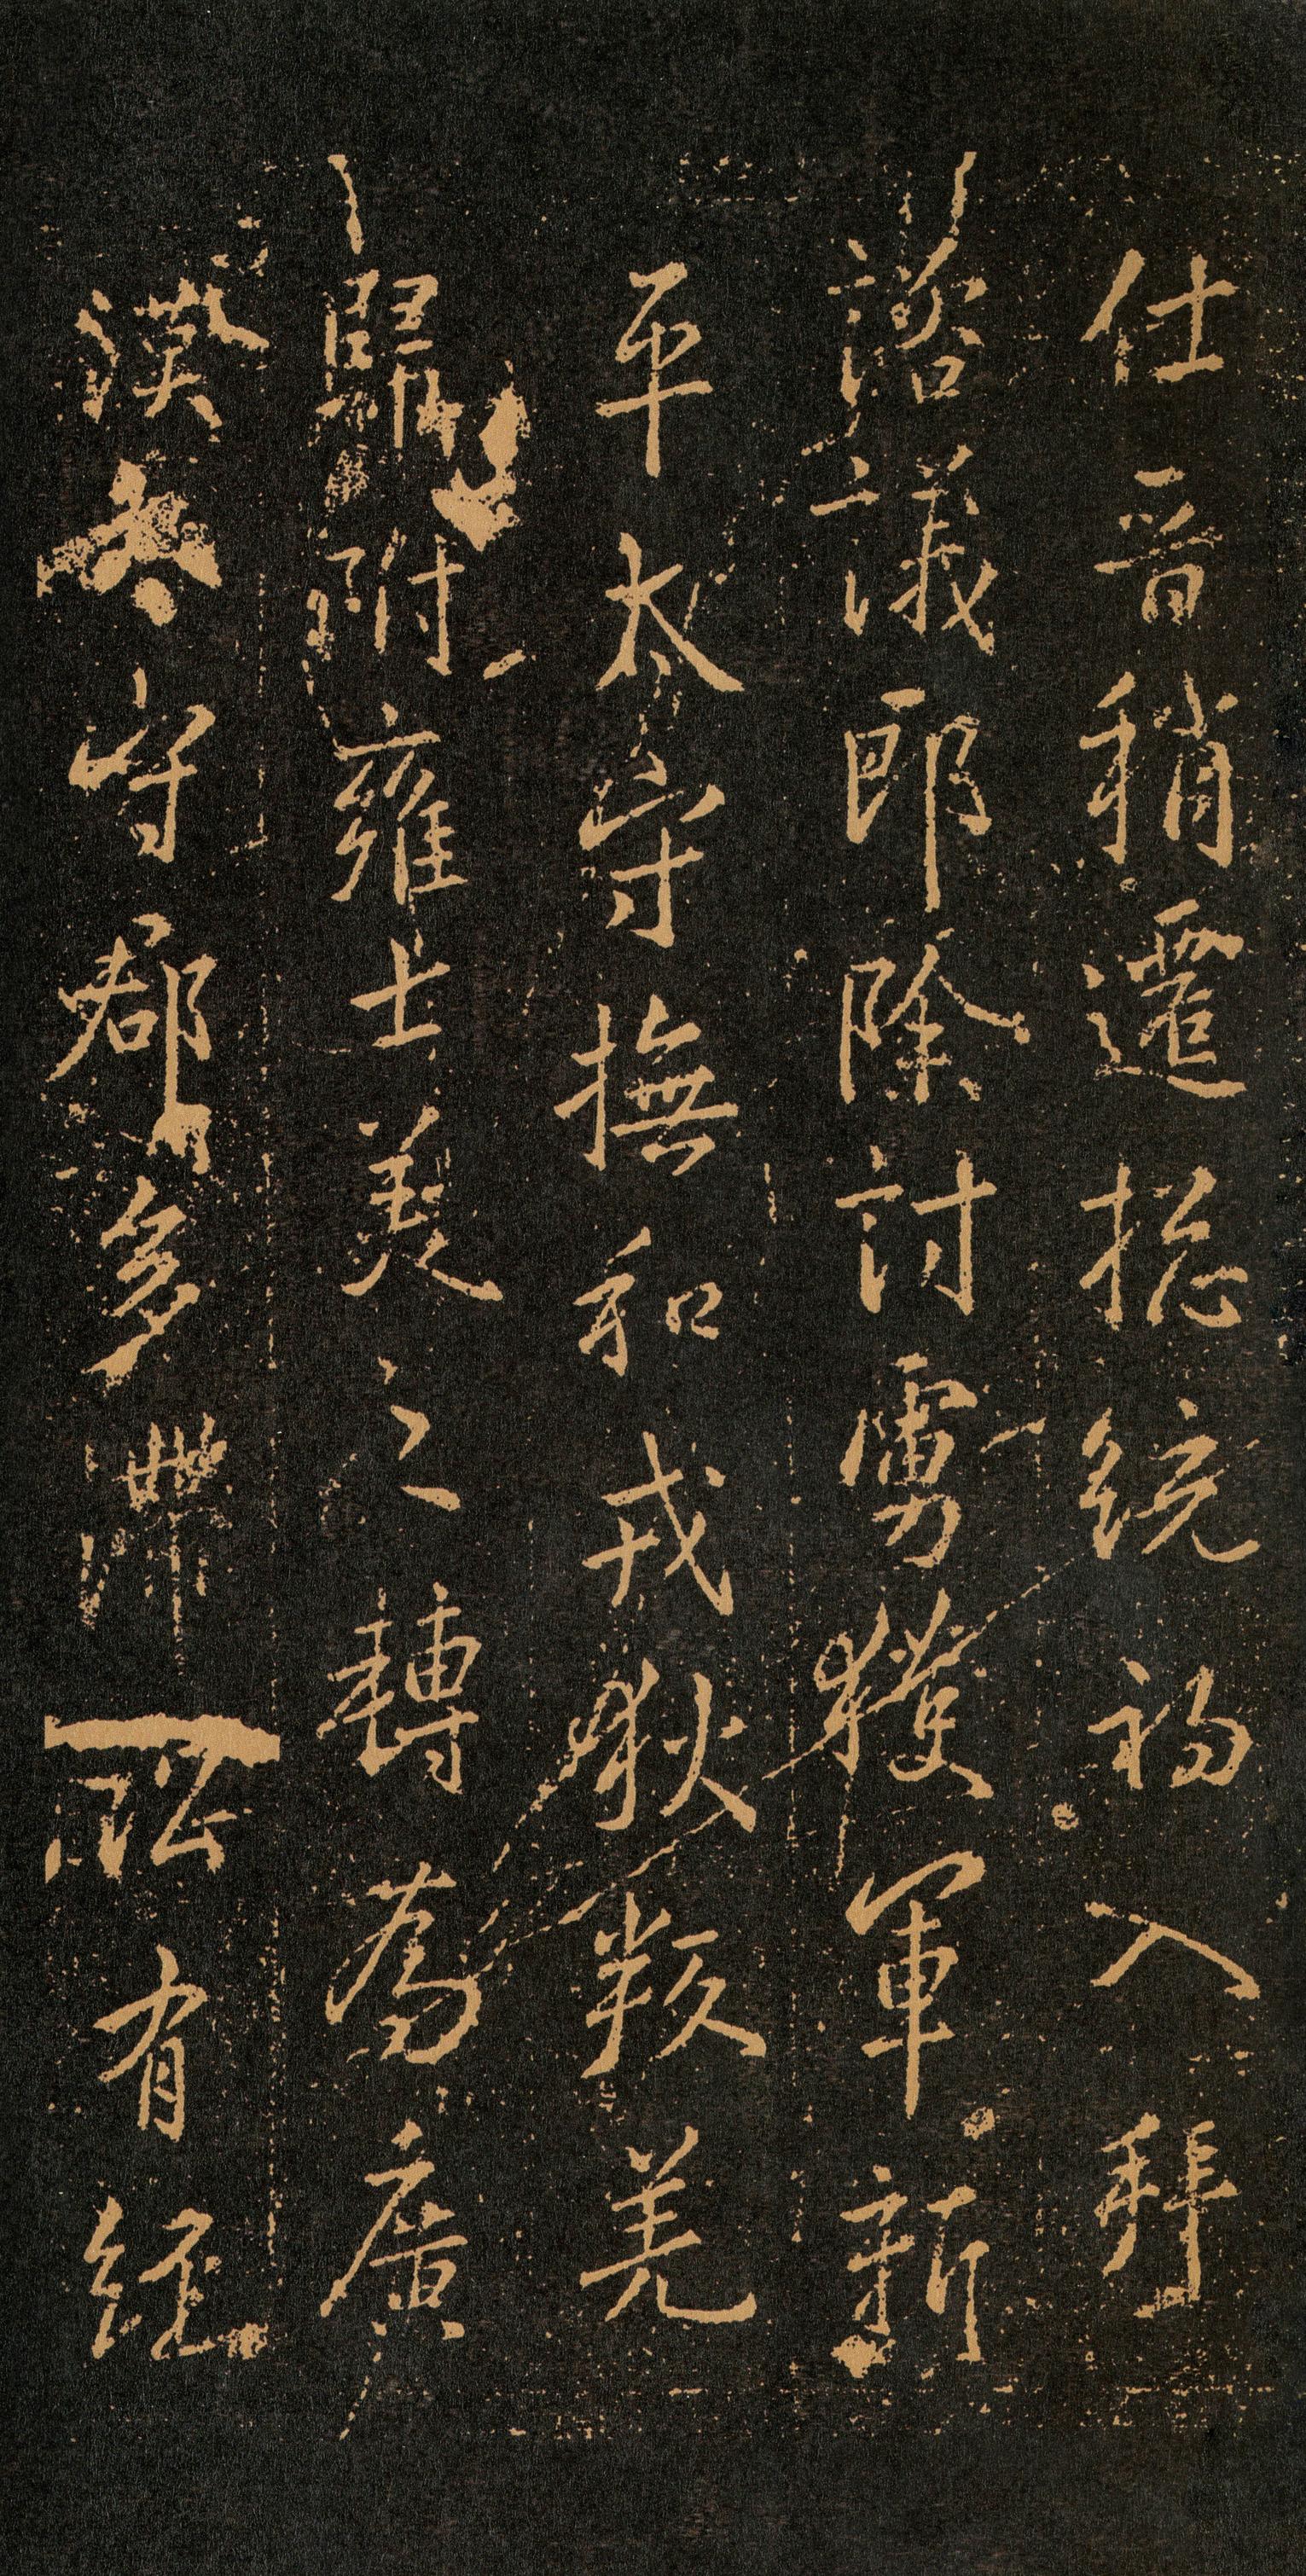 仕晉稍遷揔統初入拜
諮議郎除討虜獲軍新
平太守撫和戎狄叛羌
歸附雍土美之轉為廣
漢太守郡多滯訟有經